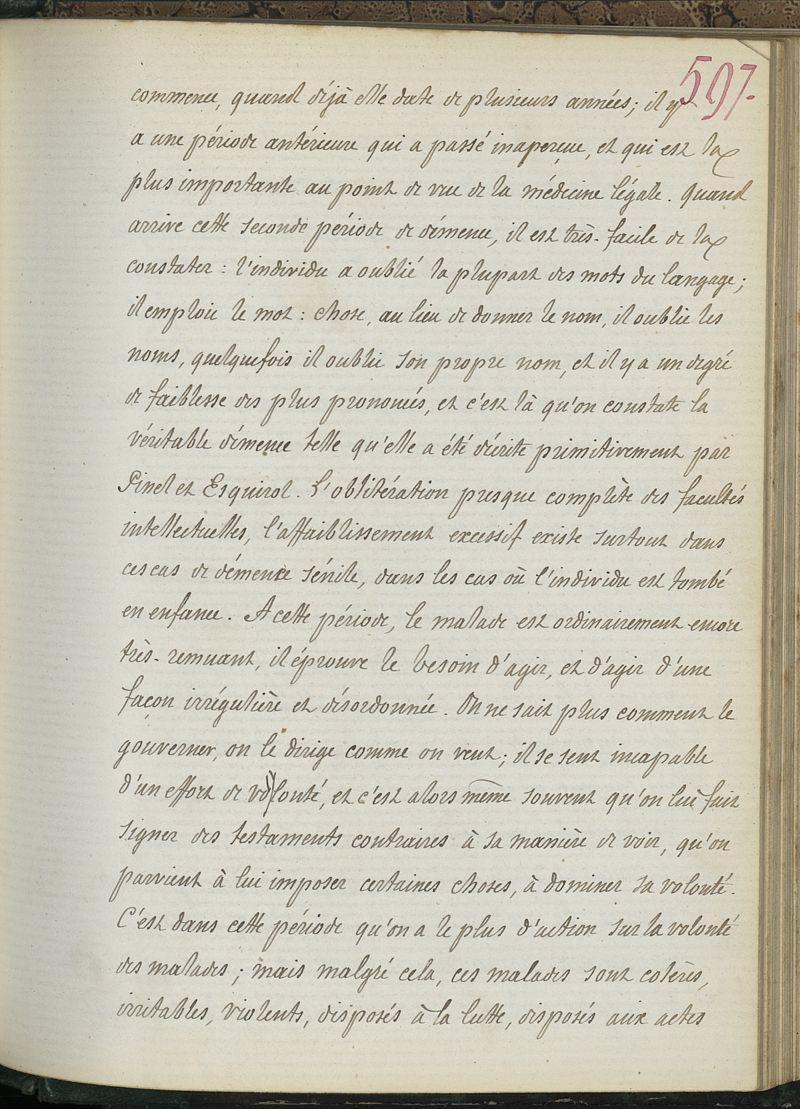 597.
commence, quand déjà elle date de plusieurs années; il y
a une période antérieure qui a passé inaperçue, et qui est la
plus importante au point de vue de la médecine légale. Quand
arrive cette seconde période de démence, il est très-facile de la
constater : l'individu a oublié la plupart des mots du langage;
il emploie le mot : chose, au lieu de donner le nom, il oublie les
noms, quelquefois il oublie son propre nom, et il y a un degré
de faiblesse des plus prononcés, et c'est là qu'on constate la
véritable démence telle qu'elle a été décrite primitivement par
Pinel et Esquirol. L'oblitération presque complète des facultés
intellectuelles, l'affaiblissement excessif existe surtout dans
ces cas de démence sénile, dans les cas où l'individu est tombé
en enfance. A cette période, le malade est ordinairement encore
très-remuant, il éprouve le besoin d'agir, et d'agir d'une
façon irrégulière et désordonnée. On ne sait plus comment le
gouverner, on le dirige comme on veut; il se sent incapable
d'un effort de volonté, et c'est alors même souvent qu'on lui fait
signer des testaments contraires à sa manière de voir, qu'on
parvient à lui imposer certaines choses, à dominer sa volonté.
C'est dans cette période qu'on a le plus d'action sur la volonté
des malades; mais malgré cela, ces malades sont colères,
irritables, violents, disposés à la lutte, disposés aux actes